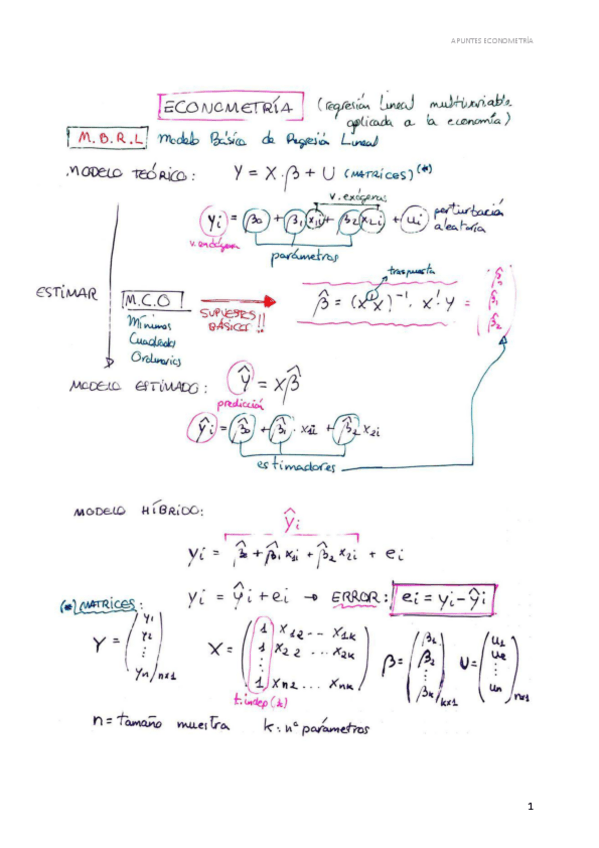 APUNTES ECONOMETRÍA
ECONOMETRÍA (regresión lineal multivariable
aplicada a la economía)
M.B.R.L Modelo Básico de Regresión Lineal
MODELO TEÓRICO: Y = X·β + U (MATRICES)(*)
v. exógenas
yi = β0 + β1 x1i + β2 x2i + ui perturbación
aleatoria
v. endógena
parámetros
traspuesta
ESTIMAR M.C.O! SUPUESTOS BÁSICOS!! β̂ = (x'x)⁻¹ · x'y = (β̂0 β̂1 β̂2)
Mínimos
Cuadrados
Ordinarios
MODELO ESTIMADO: Ŷ = Xβ̂
predicción
ŷi = β̂0 + β̂1 · x1i + β̂2 x2i
estimadores
MODELO HÍBRIDO: ŷi
yi = β̂0 + β̂1 x1i + β̂2 x2i + ei
yi = ŷi + ei → ERROR: ei = yi - ŷi
(*) MATRICES:
Y = (y1 y2 ⋮ yn) nx1 X = (1 x12 ... x1k 1 x22 ... x2k ⋮ 1 xn2 ... xnk) β = (β1 β2 ⋮ βk) kx1 U = (u1 u2 ⋮ un) nx1
t. indep (k)
n = tamaño muestra k: nº parámetros
1